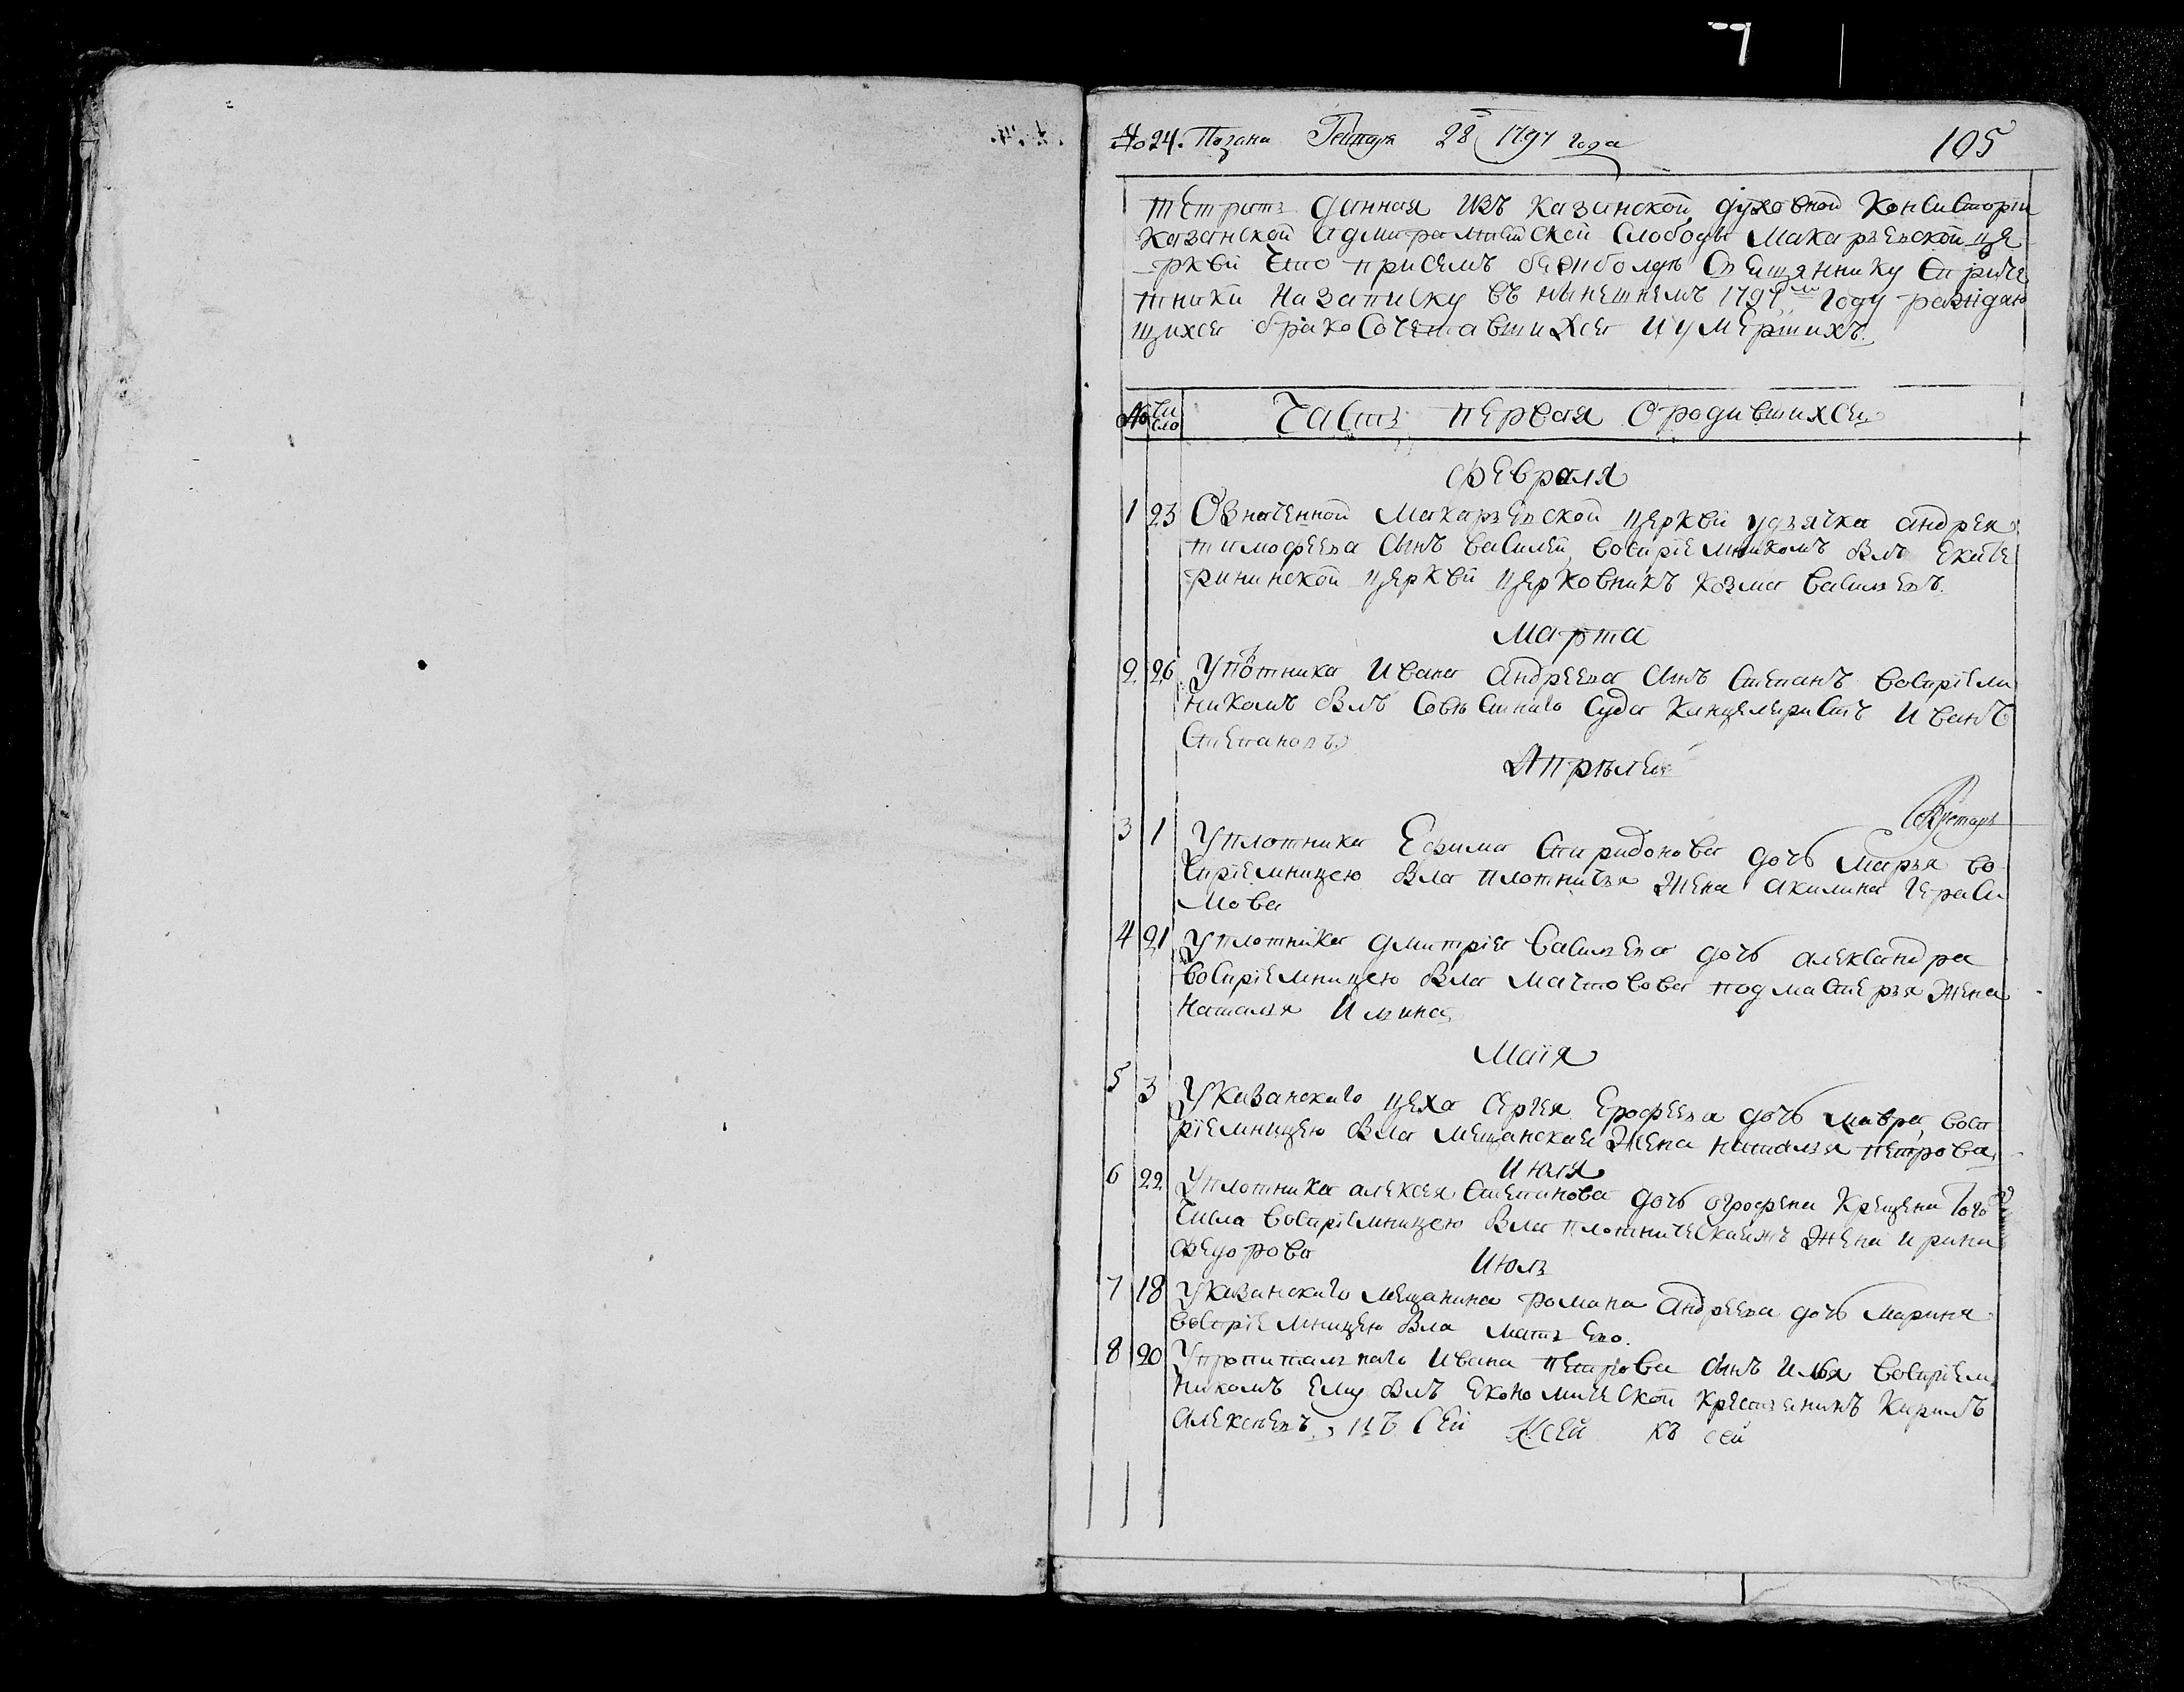 № 24. Подана Генваря 28 1797 года
105
тетрать данная изъ казанской духовной Консисторіи
казанской адмиралтейской слободы макарьевской це
рквй что при семъ
тники на записку въ нынешнемъ 1797м году раждаю
щихся бракосочетавшихся и умершихъ.
№ Чи сло Часть первая о родившихся
февраля
1 23 Означенной макарьевской церквй у дьячка андрея
тимофеева сынъ василей, воспріемникомъ былъ екате
рининской церквй церковникъ козма васильевъ.
Марта
2 26 У плотника Ивана Андреева сынъ степанъ воспріемн
никомъ былъ совѣстнаго суда канцеляристъ Иванъ
степановъ
Апрѣля
3 1 У плотника Ефима спиридонова дочь марья во
спріемницею была плотничья жена акилина гераси
мова
4 21 У плотника дмитріа васильева дочь александра
воспріемницею была мачтовова подмастерья жена
наталья Ильина
Маія
5 3 У казанскаго цеха сергея ерофеева дочь мавра, восп
ріемницею была мещанская жена наталья петрова
Июня
6 22 У плотника алексея степанова дочь огрофена крещена того
числа воспріемницею была плотническаяжъ жена ирина
федорова
Июль
7 18 У казанскаго мещанина романа андреева дочь марина
воспріемницею была мать ево.
8 20 У пропитальнаго ивана петрова сынъ илья воспріем
никомъ ему былъ економической крестьянинъ кирилъ
алексѣевъ, къ сей Ксей къ сей